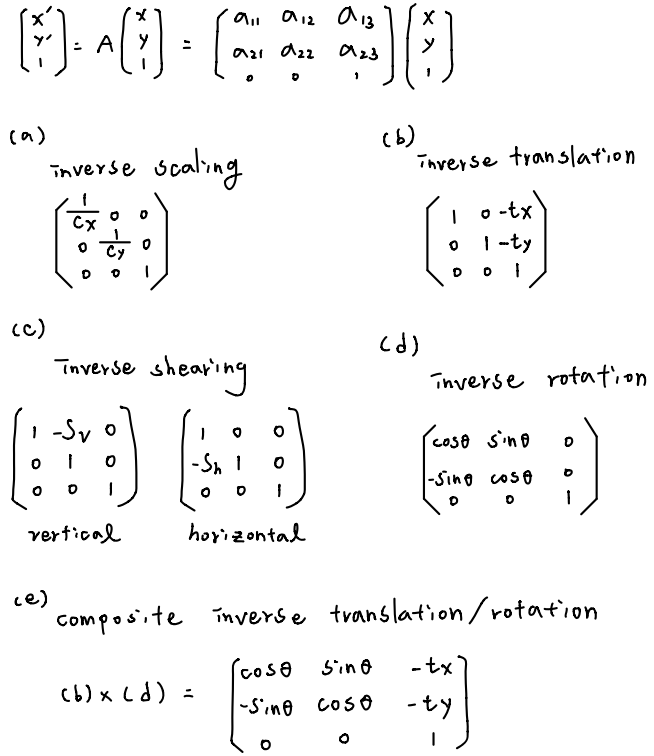 [x' y' 1] = A [x y 1] = [a11 a12 a13; a21 a22 a23; 0 0 1] [x y 1]
(a)
inverse scaling
1/Cx 0 0
0 1/Cy 0
0 0 1
(b)
inverse translation
1 0 -tx
0 1 -ty
0 0 1
(c)
inverse shearing
1 -Sv 0
0 1 0
0 0 1
vertical
1 0 0
-Sh 1 0
0 0 1
horizontal
(d)
inverse rotation
cosθ sinθ 0
-sinθ cosθ 0
0 0 1
(e)
composite inverse translation/rotation
(b)x(d) =
cosθ sinθ -tx
-sinθ cosθ -ty
0 0 1